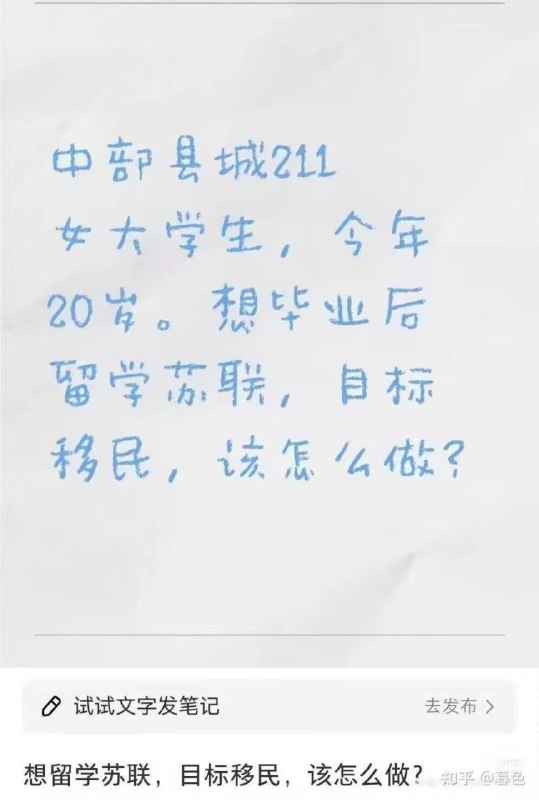 中部县城211
女大学生，今年
20岁。想毕业后
留学苏联，目标
移民，该怎么做？
试试文字发笔记
去发布
想留学苏联，目标移民，该怎么做？
知乎 @暮色